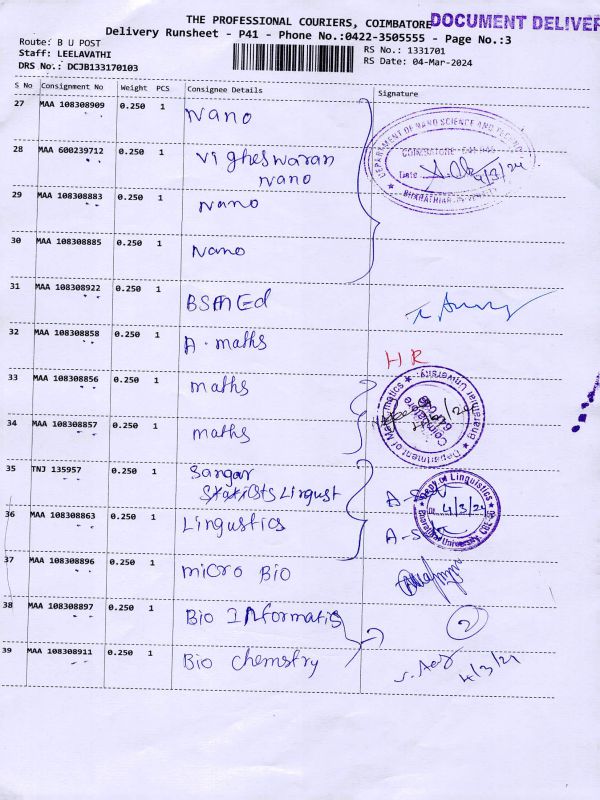 THE PROFESSIONAL COURIERS, COIMBATORE DOCUMENT DELIVER
Delivery Runsheet - P41 - Phone No.:0422-3505555 - Page No.:3
Route: B U POST
RS No.: 1331701
Staff: LEELAVATHI
RS Date: 04-Mar-2024
DRS No.: DCJB133170103
S No Consignment No Weight PCS Consignee Details Signature
27 MAA 108308909 0.250 1 Nano
DEPARTMENT OF NANO SCIENCE AND
COIMBATORE
Date 4/3/24
BHARATHIAR UNIVERSITY
28 MAA 600239712 0.250 1 Vigheswaran
Nano
29 MAA 108308883 0.250 1 Nano
30 MAA 108308885 0.250 1 Nano
31 MAA 108308922 0.250 1 BSMEd
32 MAA 108308858 0.250 1 A. maths
HR
33 MAA 108308856 0.250 1 maths
Department of Mathematics
Bharathiar University
Coimbatore
34 MAA 108308857 0.250 1 maths
35 TNJ 135957 0.250 1 Sangar
Lingust
Dept of Linguistics
4/3/24
Bharathiar University, CBE-46
36 MAA 108308863 0.250 1 Lingustics
37 MAA 108308896 0.250 1 micro Bio
38 MAA 108308897 0.250 1 Bio Informatis
2
39 MAA 108308911 0.250 1 Bio chemstry
4/3/24